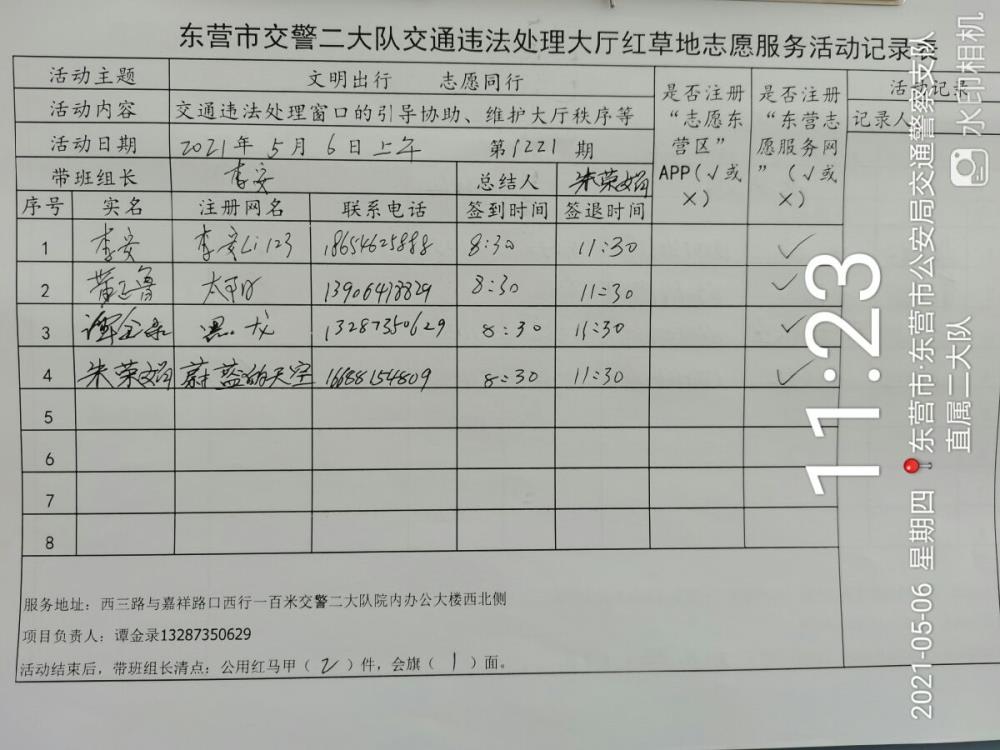 东营市交警二大队交通违法处理大厅红草地志愿服务活动记录表
活动主题 文明出行 志愿同行
活动内容 交通违法处理窗口的引导协助、维护大厅秩序等
活动日期 2021年5月6日上午 第1221期
带班组长 李安 总结人 朱荣娟
是否注册“志愿东营区”APP(√或×)
是否注册“东营志愿服务网”(√或×)
活动记录
记录人
序号 实名 注册网名 联系电话 签到时间 签退时间
1 李安 李安Li123 18654625888 8:30 11:30 ✓
2 黄正鲁 太阳 13906478829 8:30 11:30 ✓
3 谭金录 黑龙 13287350629 8:30 11:30 ✓
4 朱荣娟 蔚蓝的天空 16688154809 8:30 11:30 ✓
5
6
7
8
服务地址：西三路与嘉祥路口西行一百米交警二大队院内办公大楼西北侧
项目负责人：谭金录13287350629
活动结束后，带班组长清点：公用红马甲（2）件，会旗（1）面。
11:23
2021-05-06 星期四 东营市·东营市公安局交通警察支队
直属二大队
水印相机